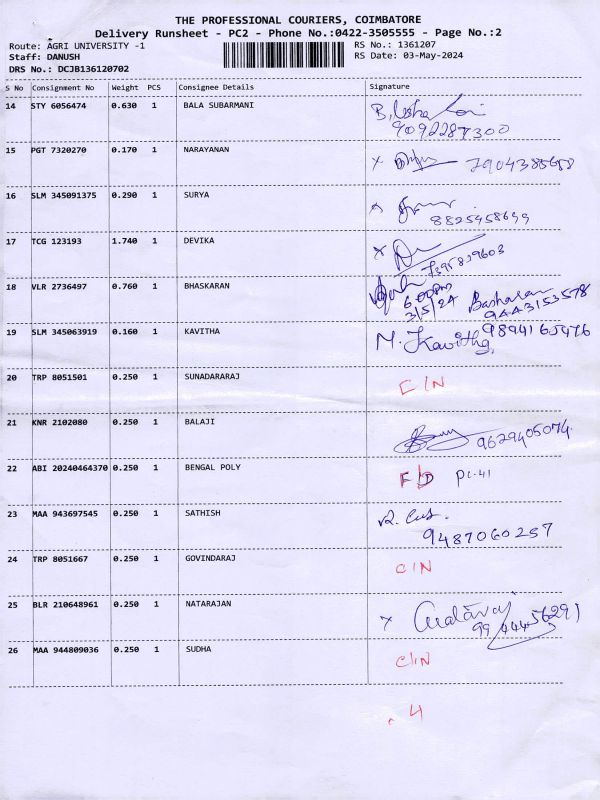 THE PROFESSIONAL COURIERS, COIMBATORE
Delivery Runsheet - PC2 - Phone No.:0422-3505555 - Page No.:2
Route: AGRI UNIVERSITY -1 RS No.: 1361207
Staff: DANUSH RS Date: 03-May-2024
DRS No.: DCJB136120702
S No Consignment No Weight PCS Consignee Details Signature
14 STY 6056474 0.630 1 BALA SUBARMANI
9092287300
15 PGT 7320270 0.170 1 NARAYANAN
16 SLM 345091375 0.290 1 SURYA
8825458699
17 TCG 123193 1.740 1 DEVIKA
7395839603
18 VLR 2736497 0.760 1 BHASKARAN
6:00pm Baskaran
3/5/24 9443153578
19 SLM 345063919 0.160 1 KAVITHA M. Kavitha 9894165476
20 TRP 8051501 0.250 1 SUNADARARAJ C/N
21 KNR 2102080 0.250 1 BALAJI 9629405074
22 ABI 20240464370 0.250 1 BENGAL POLY F/D PC-41
23 MAA 943697545 0.250 1 SATHISH
9487060257
24 TRP 8051667 0.250 1 GOVINDARAJ C/N
25 BLR 210648961 0.250 1 NATARAJAN
9944456291
26 MAA 944809036 0.250 1 SUDHA C/N
4